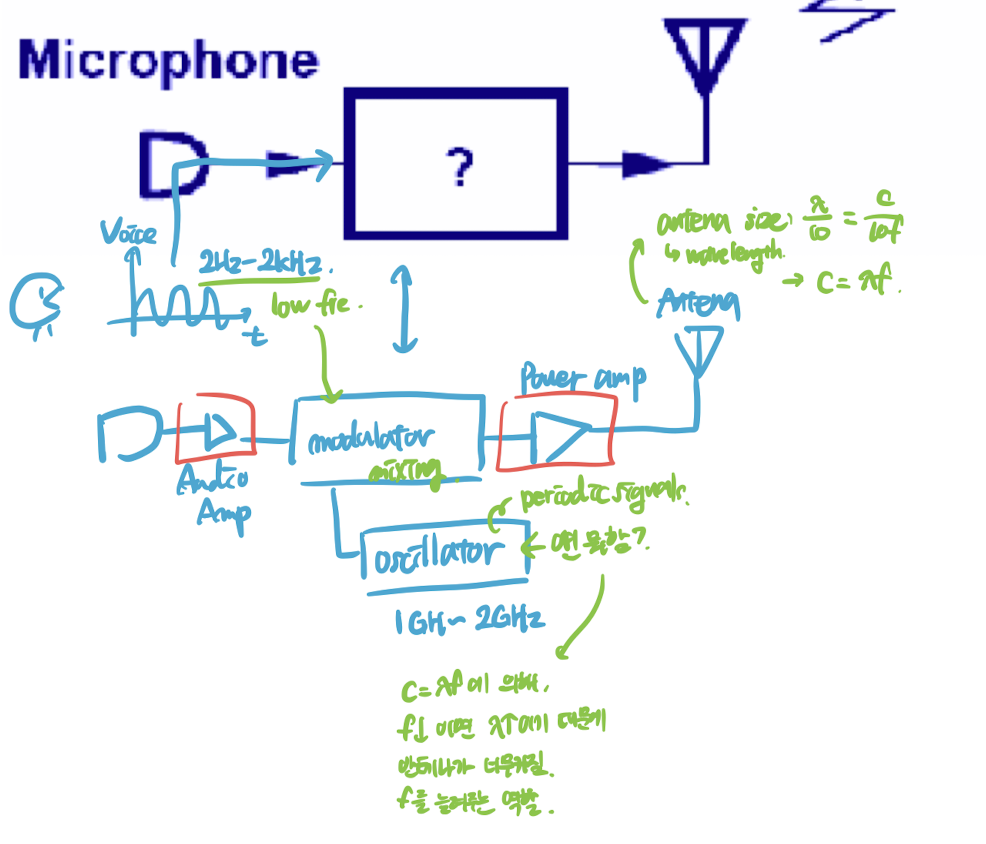 Microphone
?
Voice
2Hz-2kHz.
low fre.
t
antena size: λ/10 = c/10f
↳ wavelength.
→ C = λf.
Antena
Power amp
modulator
mixing
Audio
Amp
periodic signals.
oscillator
← 얜 뭘함?
1GH ~ 2GHz
C=λf에 의해.
f↓ 이면 λ↑이기 때문에
안테나가 너무커짐.
f를 늘려주는 역할.